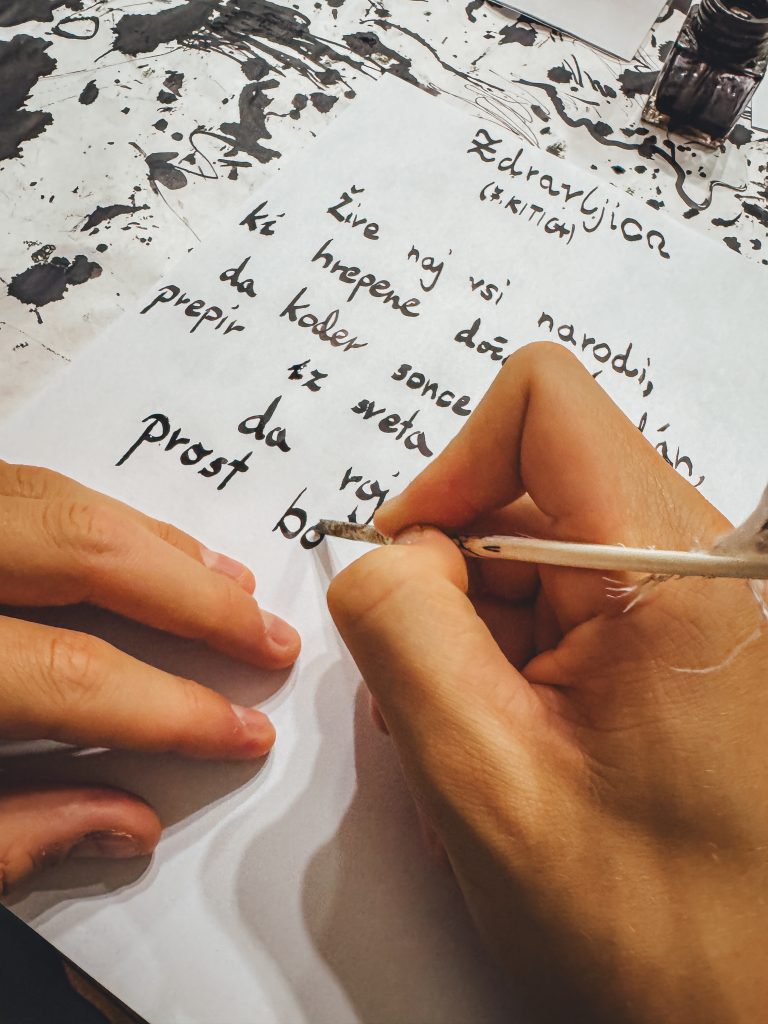 Zdravljica
(7. KITICA)
Žive naj vsi narodi,
ki hrepene
da koder sonce
prepir iz sveta
da roj
prost bo